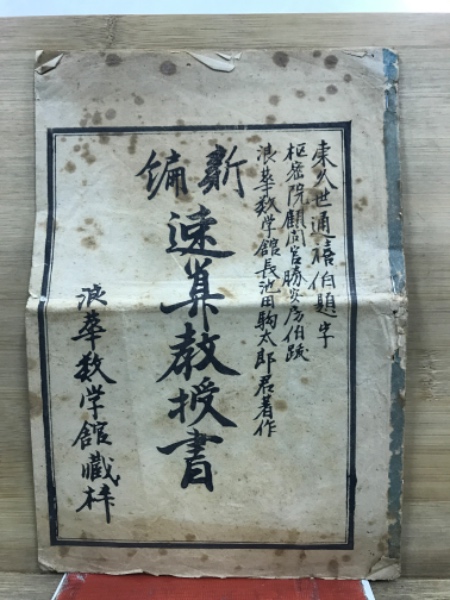 東久世通禧伯題字
枢密院顧問官勝安房伯跋
浪華数学館長池田駒太郎君著作
新編
速算教授書
浪華数学館蔵梓